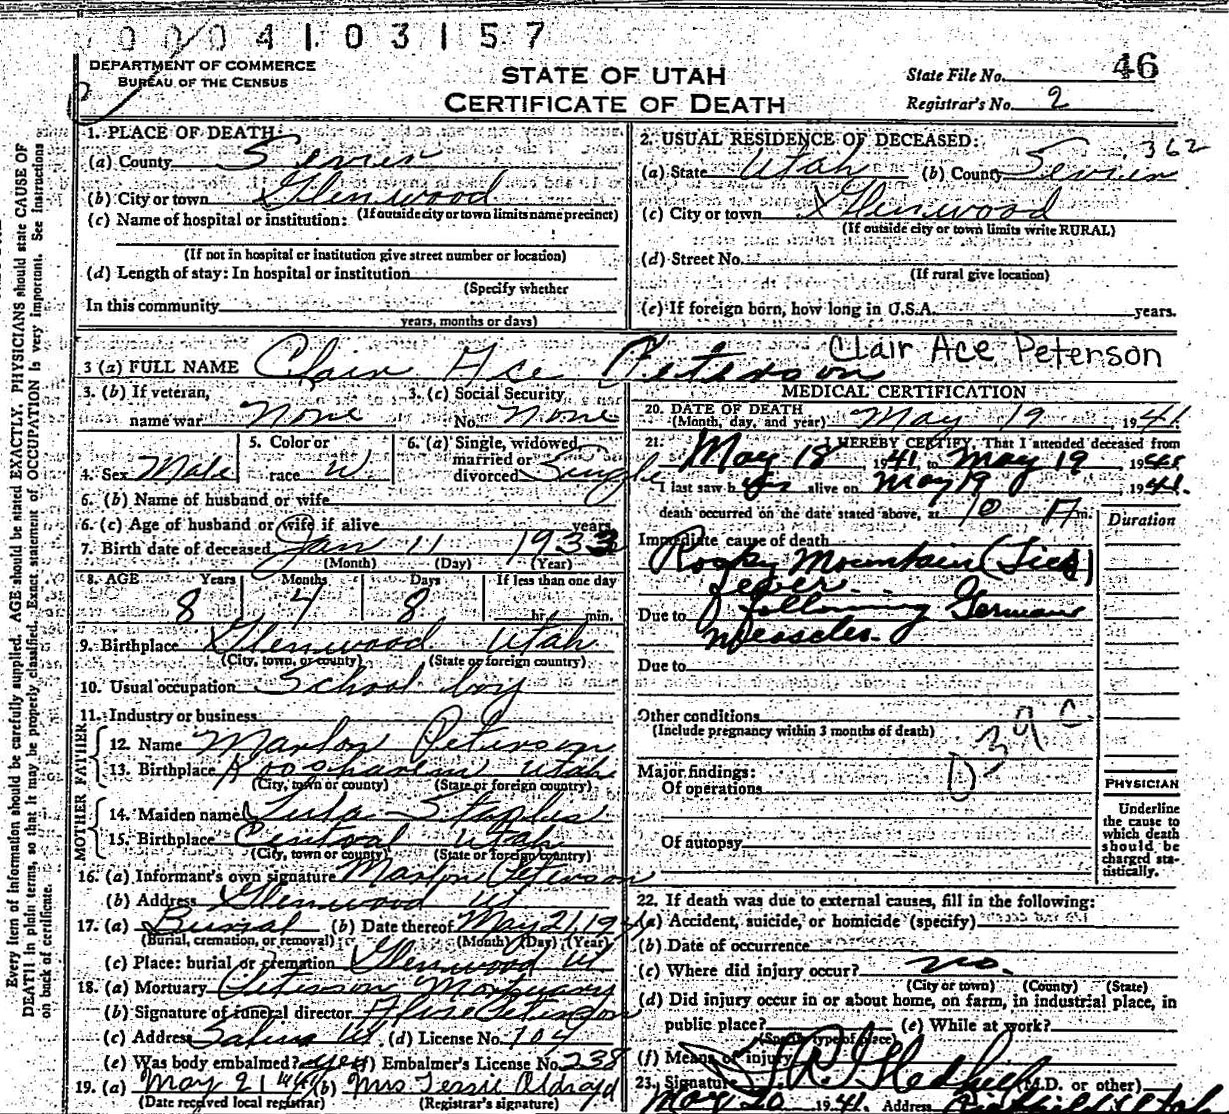 0004103157
DEPARTMENT OF COMMERCE
BUREAU OF THE CENSUS
STATE OF UTAH
CERTIFICATE OF DEATH
State File No. 46
Registrar's No. 2
Every item of information should be carefully supplied. AGE should be stated EXACTLY. PHYSICIANS should state CAUSE OF
DEATH in plain terms, so that it may be properly classified. Exact statement of OCCUPATION is very important. See Instructions
on back of certificate.
1. PLACE OF DEATH:
(a) County Sevier
(b) City or town Glenwood
(If outside city or town limits name precinct)
(c) Name of hospital or institution:
(If not in hospital or institution give street number or location)
(d) Length of stay: In hospital or institution
(Specify whether
In this community
years, months or days)
2. USUAL RESIDENCE OF DECEASED: 362
(a) State Utah (b) County Sevier
(c) City or town Glenwood
(If outside city or town limits write RURAL)
(d) Street No.
(If rural give location)
(e) If foreign born, how long in U.S.A. years.
3 (a) FULL NAME Clair Ace Peterson
Clair Ace Peterson
3. (b) If veteran, name war None
3. (c) Social Security No. None
4. Sex Male
5. Color or race W
6. (a) Single, widowed, married or divorced Single
6. (b) Name of husband or wife
6. (c) Age of husband or wife if alive years
7. Birth date of deceased Jan 11 1933
(Month) (Day) (Year)
8. AGE Years Months Days If less than one day
8 4 8 hr. min.
9. Birthplace Glenwood Utah
(City, town, or county) (State or foreign country)
10. Usual occupation School boy
11. Industry or business
FATHER
12. Name Marlon Peterson
13. Birthplace Koosharem Utah
(City, town or county) (State or foreign country)
MOTHER
14. Maiden name Lula Staples
15. Birthplace Central Utah
(City, town or county) (State or foreign country)
16. (a) Informant's own signature Marlon Peterson
(b) Address Glenwood Ut
17. (a) Burial (b) Date thereof May 21, 1941
(Burial, cremation, or removal) (Month) (Day) (Year)
(c) Place: burial or cremation Glenwood Ut
18. (a) Mortuary Peterson Mortuary
(b) Signature of funeral director Peterson
(c) Address Salina Ut (d) License No. 104
(e) Was body embalmed? yes (f) Embalmer's License No. 238
19. (a) May 21 (b) Mrs Tessie Oldroyd
(Date received local registrar) (Registrar's signature)
MEDICAL CERTIFICATION
20. DATE OF DEATH May 19, 1941
(Month, day, and year)
21. I HEREBY CERTIFY, That I attended deceased from
May 18, 1941 to May 19 1941
I last saw h alive on May 19, 1941.
death occurred on the date stated above, at 10 A m.
Duration
Immediate cause of death
Rocky Mountain (Tick)
fever
Due to following German
measeles.
Due to
Other conditions
(Include pregnancy within 3 months of death)
039c
Major findings:
Of operations
Of autopsy
PHYSICIAN
Underline
the cause to
which death
should be
charged sta-
tistically.
22. If death was due to external causes, fill in the following:
(a) Accident, suicide, or homicide (specify)
(b) Date of occurrence
(c) Where did injury occur? no.
(City or town) (County) (State)
(d) Did injury occur in or about home, on farm, in industrial place, in
public place? (e) While at work?
(Specify type of place)
(f) Means of injury
23. Signature (M.D. or other)
May 20 1941. Address